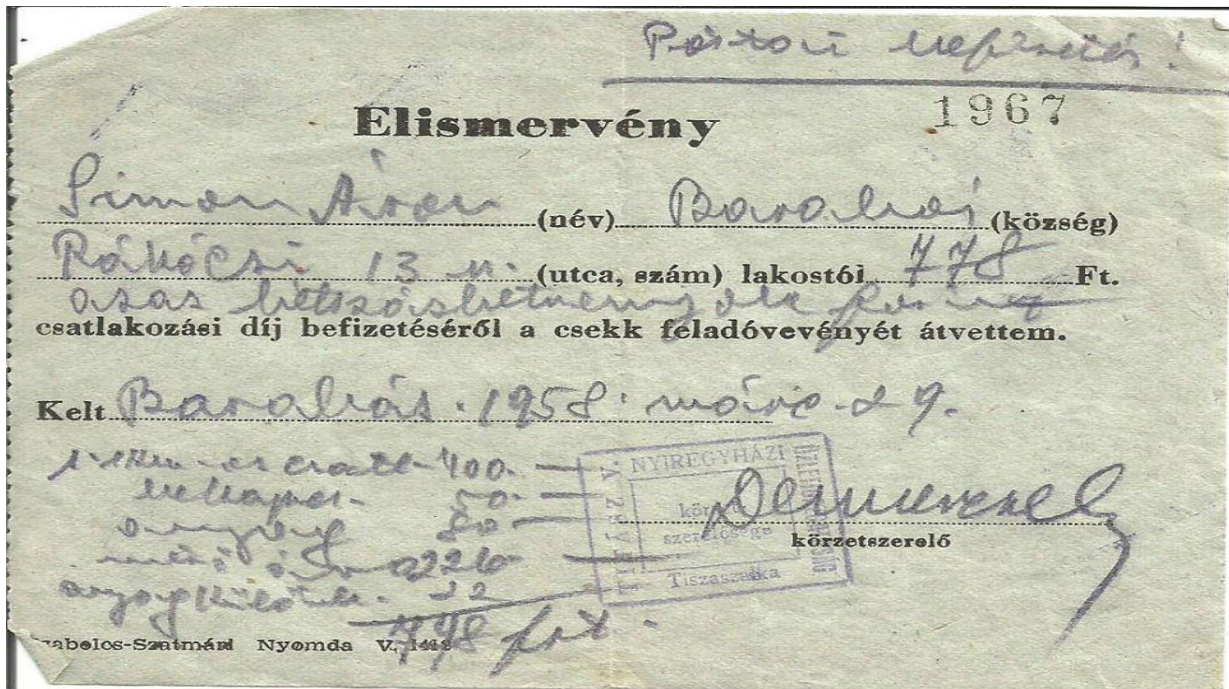 Postai befizetés!
1967
Elismervény
Simon Áron (név) Barabás (község)
Rákóczi 13 u. (utca, szám) lakostól 778 Ft.
azaz hétszázhetvennyolc forint
csatlakozási díj befizetéséről a csekk feladóvevényét átvettem.
Kelt Barabás. 1958. márc. 29.
400.—
bekapcs. 50.—
anyag 80—
mérő óra 226
anyag 22
778 frt.
NYIREGYHÁZI
TISZATÁJI
körzeti
szerelősége
Tiszaszalka
körzetszerelő
Szabolcs-Szatmári Nyomda V. 1412